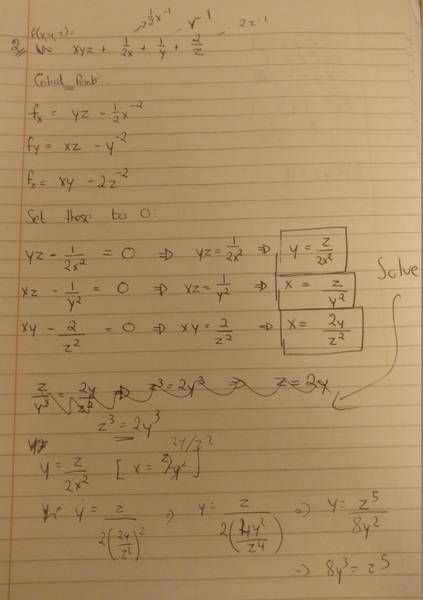 ½x⁻¹ y⁻¹ 2z⁻¹
f(x,y,z)=
2, xyz + 1/2x + 1/y + 2/z
Critical Points
fx = yz - ½x⁻²
fy = xz - y⁻²
fz = xy - 2z⁻²
Set these to 0:
yz - 1/2x² = 0 ⇒ yz = 1/2x² ⇒ y = z/2x²
xz - 1/y² = 0 ⇒ xz = 1/y² ⇒ x = z/y²
xy - 2/z² = 0 ⇒ xy = 2/z² ⇒ x = 2y/z²
Solve
z/y² = 2y/z² ⇒ z³ = 2y³ ⇒ z = 2y
z³ = 2y³
y = z/2x² [x = z/y²] 2y/z²
y = z/2(2y/z²)² ⇒ y = z/2(4y²/z⁴) ⇒ y = z⁵/8y²
⇒ 8y³ = z⁵